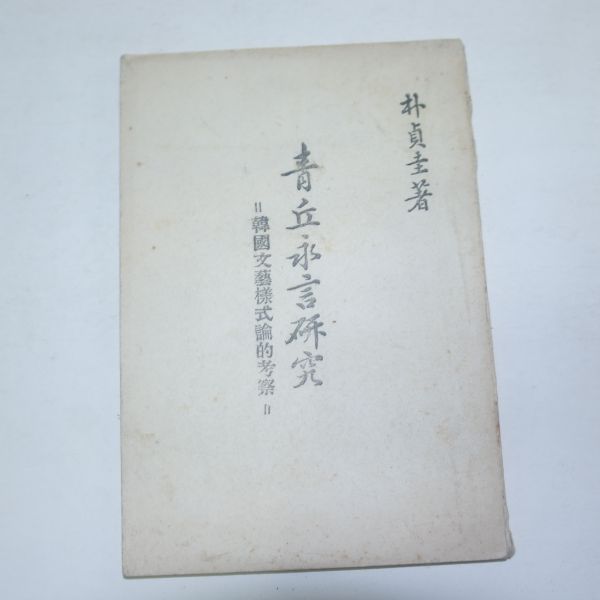 朴貞圭著
青丘永言研究
=韓國文藝樣式論的考察=